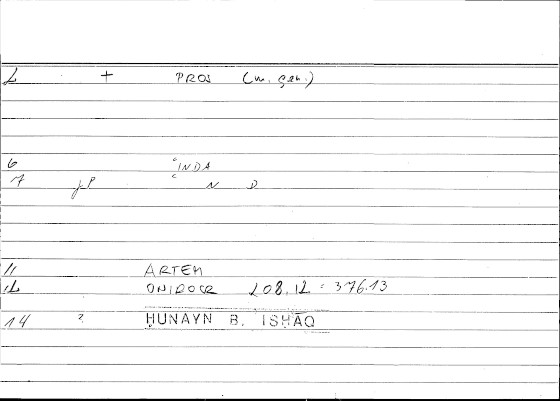 2 + PROS (w. gen.)
6 ʿINDA
7 N D
11 ARTEM
12 ONIROCR 208.12 = 376.13
14 ? ḤUNAYN B. ISḤĀQ